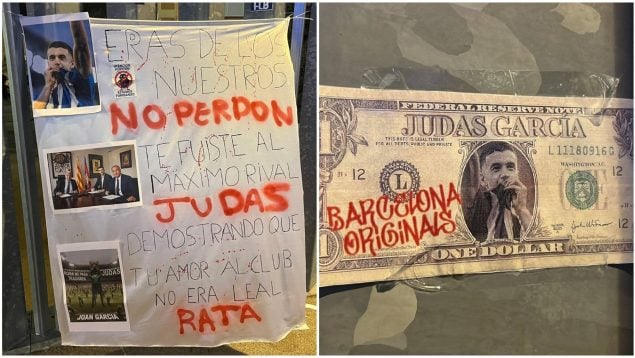 ERAS DE LOS
NUESTROS
NO PERDON
TE FUISTE AL
MAXIMO RIVAL
JUDAS
DEMOSTRANDO QUE
TU AMOR AL CLUB
NO ERA LEAL
RATA
JUDAS
JOAN GARCIA
FLB
FEDERAL RESERVE NOTE
JUDAS GARCÍA
THIS NOTE IS LEGAL TENDER
FOR ALL DEBTS, PUBLIC AND PRIVATE
L 11180916 G
WASHINGTON, D.C.
12
12
L
1
BARCELONA
ORIGINALS
ONE DOLLAR